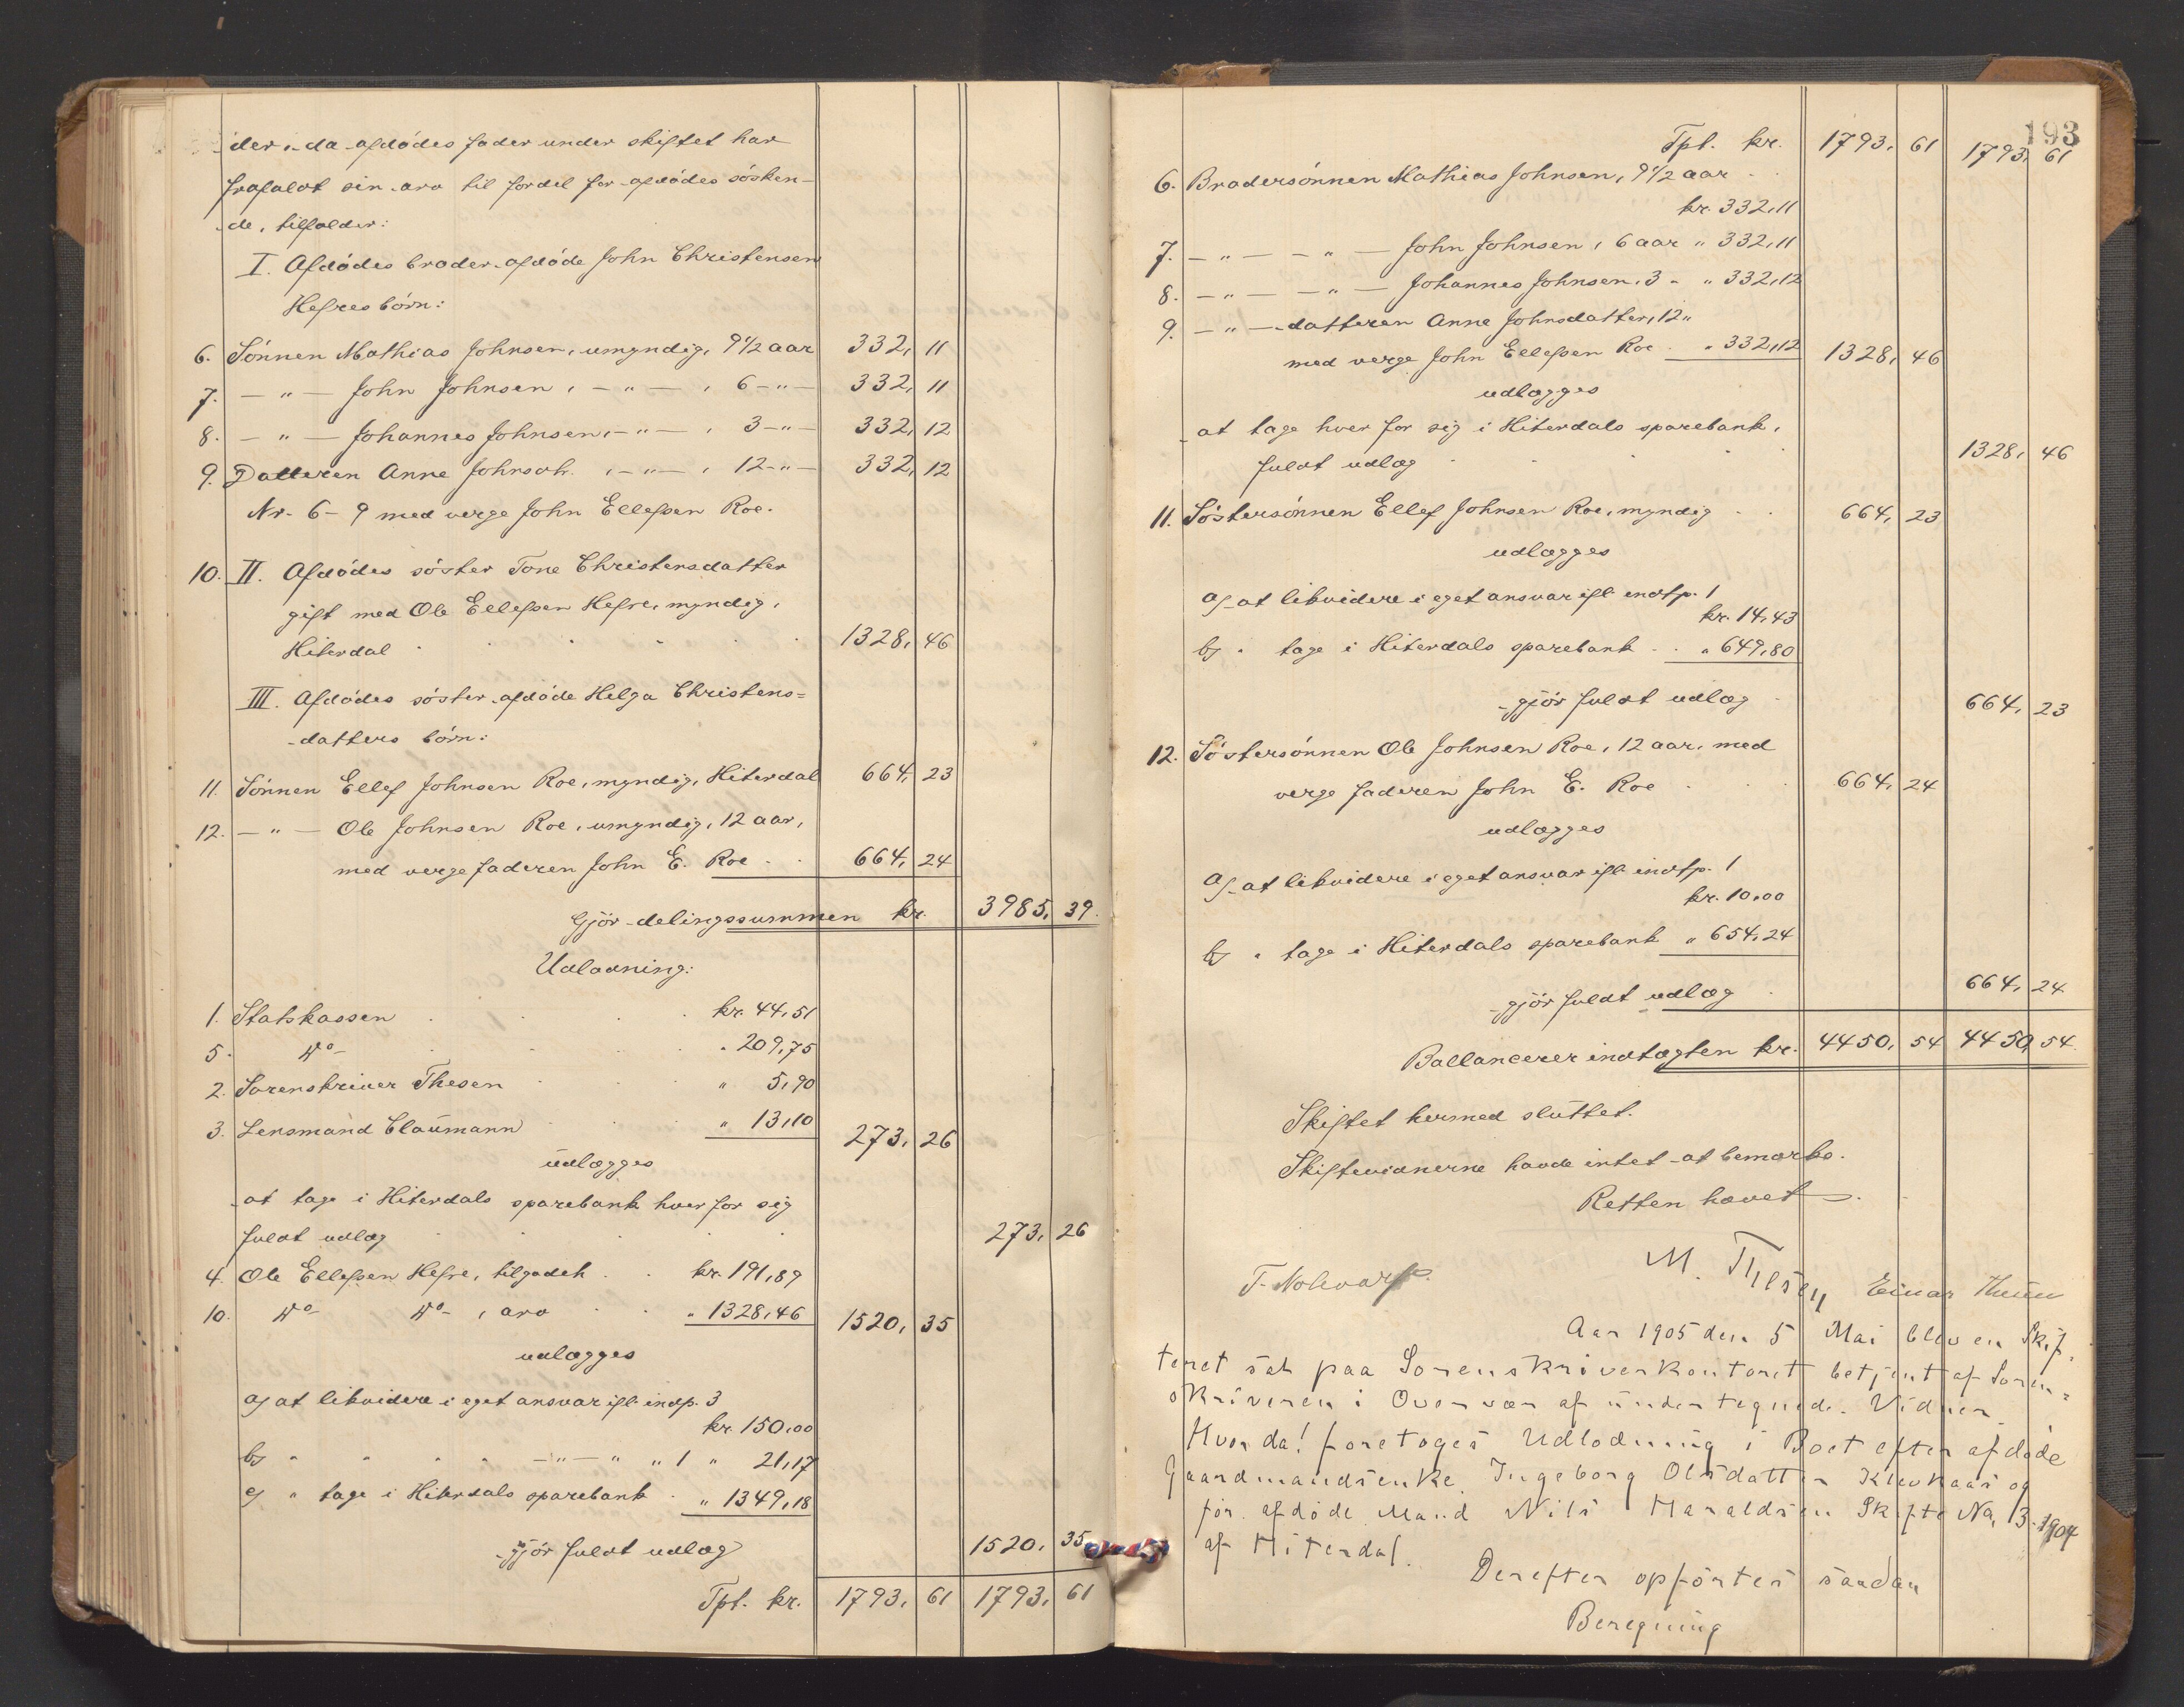 der, da afdødes fader under skiftet har
frafaldt sin arv til fordel for afdødes søsken-
de, tilfalder:
I. Afdødes broder afdøde John Christensen
Hefres børn:
6. Sønnen Mathias Johnsen, umyndig, 9 1/2 aar 332, 11
7. — " — John Johnsen, — " — , 6 — " — 332, 11
8. — " — Johannes Johnsen, — " — , 3 — " — 332, 12
9. Datteren Anne Johnsdtr. , — " — , 12 — " — 332, 12
Nr. 6 – 9 med verge John Ellefsen Roe.
10. II. Afdødes søster Tone Christensdatter
gift med Ole Ellefsen Hefre, myndig,
Hiterdal 1328, 46
III. Afdødes søster afdøde Helga Christens=
datters børn:
11. Sønnen Ellef Johnsen Roe, myndig, Hiterdal 664, 23
12. — " — Ole Johnsen Roe, umyndig, 12 aar,
med verge faderen John E. Roe 664, 24
Gjør delingssummen kr. 3985, 39.
Udlodning:
1. Statskassen kr. 44,51
5. do " 209,75
2. Sorenskriver Thesen " 5,90
3. Lensmand Claumann " 13,10 273, 26
udlægges
at tage i Hiterdals sparebank hver for sig
fuldt udlæg 273, 26
4. Ole Ellefsen Hefre, tilgodeh. kr. 191,89
10. do do , arv " 1328,46 1520, 35
udlægges
a) at likvidere i eget ansvar ifl. indp. 3
kr. 150,00
b) " " " " — " — " " 1 " 21,17
c) " tage i Hiterdals sparebank " 1349,18
gjør fuldt udlæg 1520, 35
Tpt. kr. 1793, 61 1793, 61
193
Tpt. kr. 1793, 61 1793, 61
6. Brodersønnen Mathias Johnsen, 9 1/2 aar
kr. 332,11
7. — " — — " — John Johnsen, 6 aar " 332,11
8. — " — — " — Johannes Johnsen, 3 " " 332,12
9. — " — datteren Anne Johnsdatter, 12 "
med verge John Ellefsen Roe " 332,12 1328, 46
udlægges
at tage hver for sig i Hiterdals sparebank,
fuldt udlæg 1328, 46
11. Søstersønnen Ellef Johnsen Roe, myndig 664, 23
udlægges
a) at likvidere i eget ansvar ifl. indtp. 1
kr. 14,43
b) " tage i Hiterdals sparebank " 649,80
gjør fuldt udlæg 664, 23
12. Søstersønnen Ole Johnsen Roe, 12 aar, med
verge faderen John E. Roe 664, 24
udlægges
a) at likvidere i eget ansvar ifl. indtp. 1
kr. 10,00
b) " tage i Hiterdals sparebank " 654,24
gjør fuldt udlæg 664, 24
Ballancerer indtægten kr. 4450, 54 4450, 54.
Skiftet hermed sluttet.
Skiftevidnerne havde intet at bemærke.
Retten hævet.
M. Thesen Einar
Aar 1905 den 5 Mai blev en Skif-
teret sat paa Sorenskriverkontoret betjent af Soren=
skriveren i Overvær af undertegnede Vidner.
Hvor da! foretoges Udlodning i Boet efter afdøde
Gaardmandsenke Ingeborg Olsdatter Klevkaas og
før afdøde Mand Nils Haraldsen Skifte No, 3. 1904
af Hiterdal.
Derefter opførtes saadan
Beregning